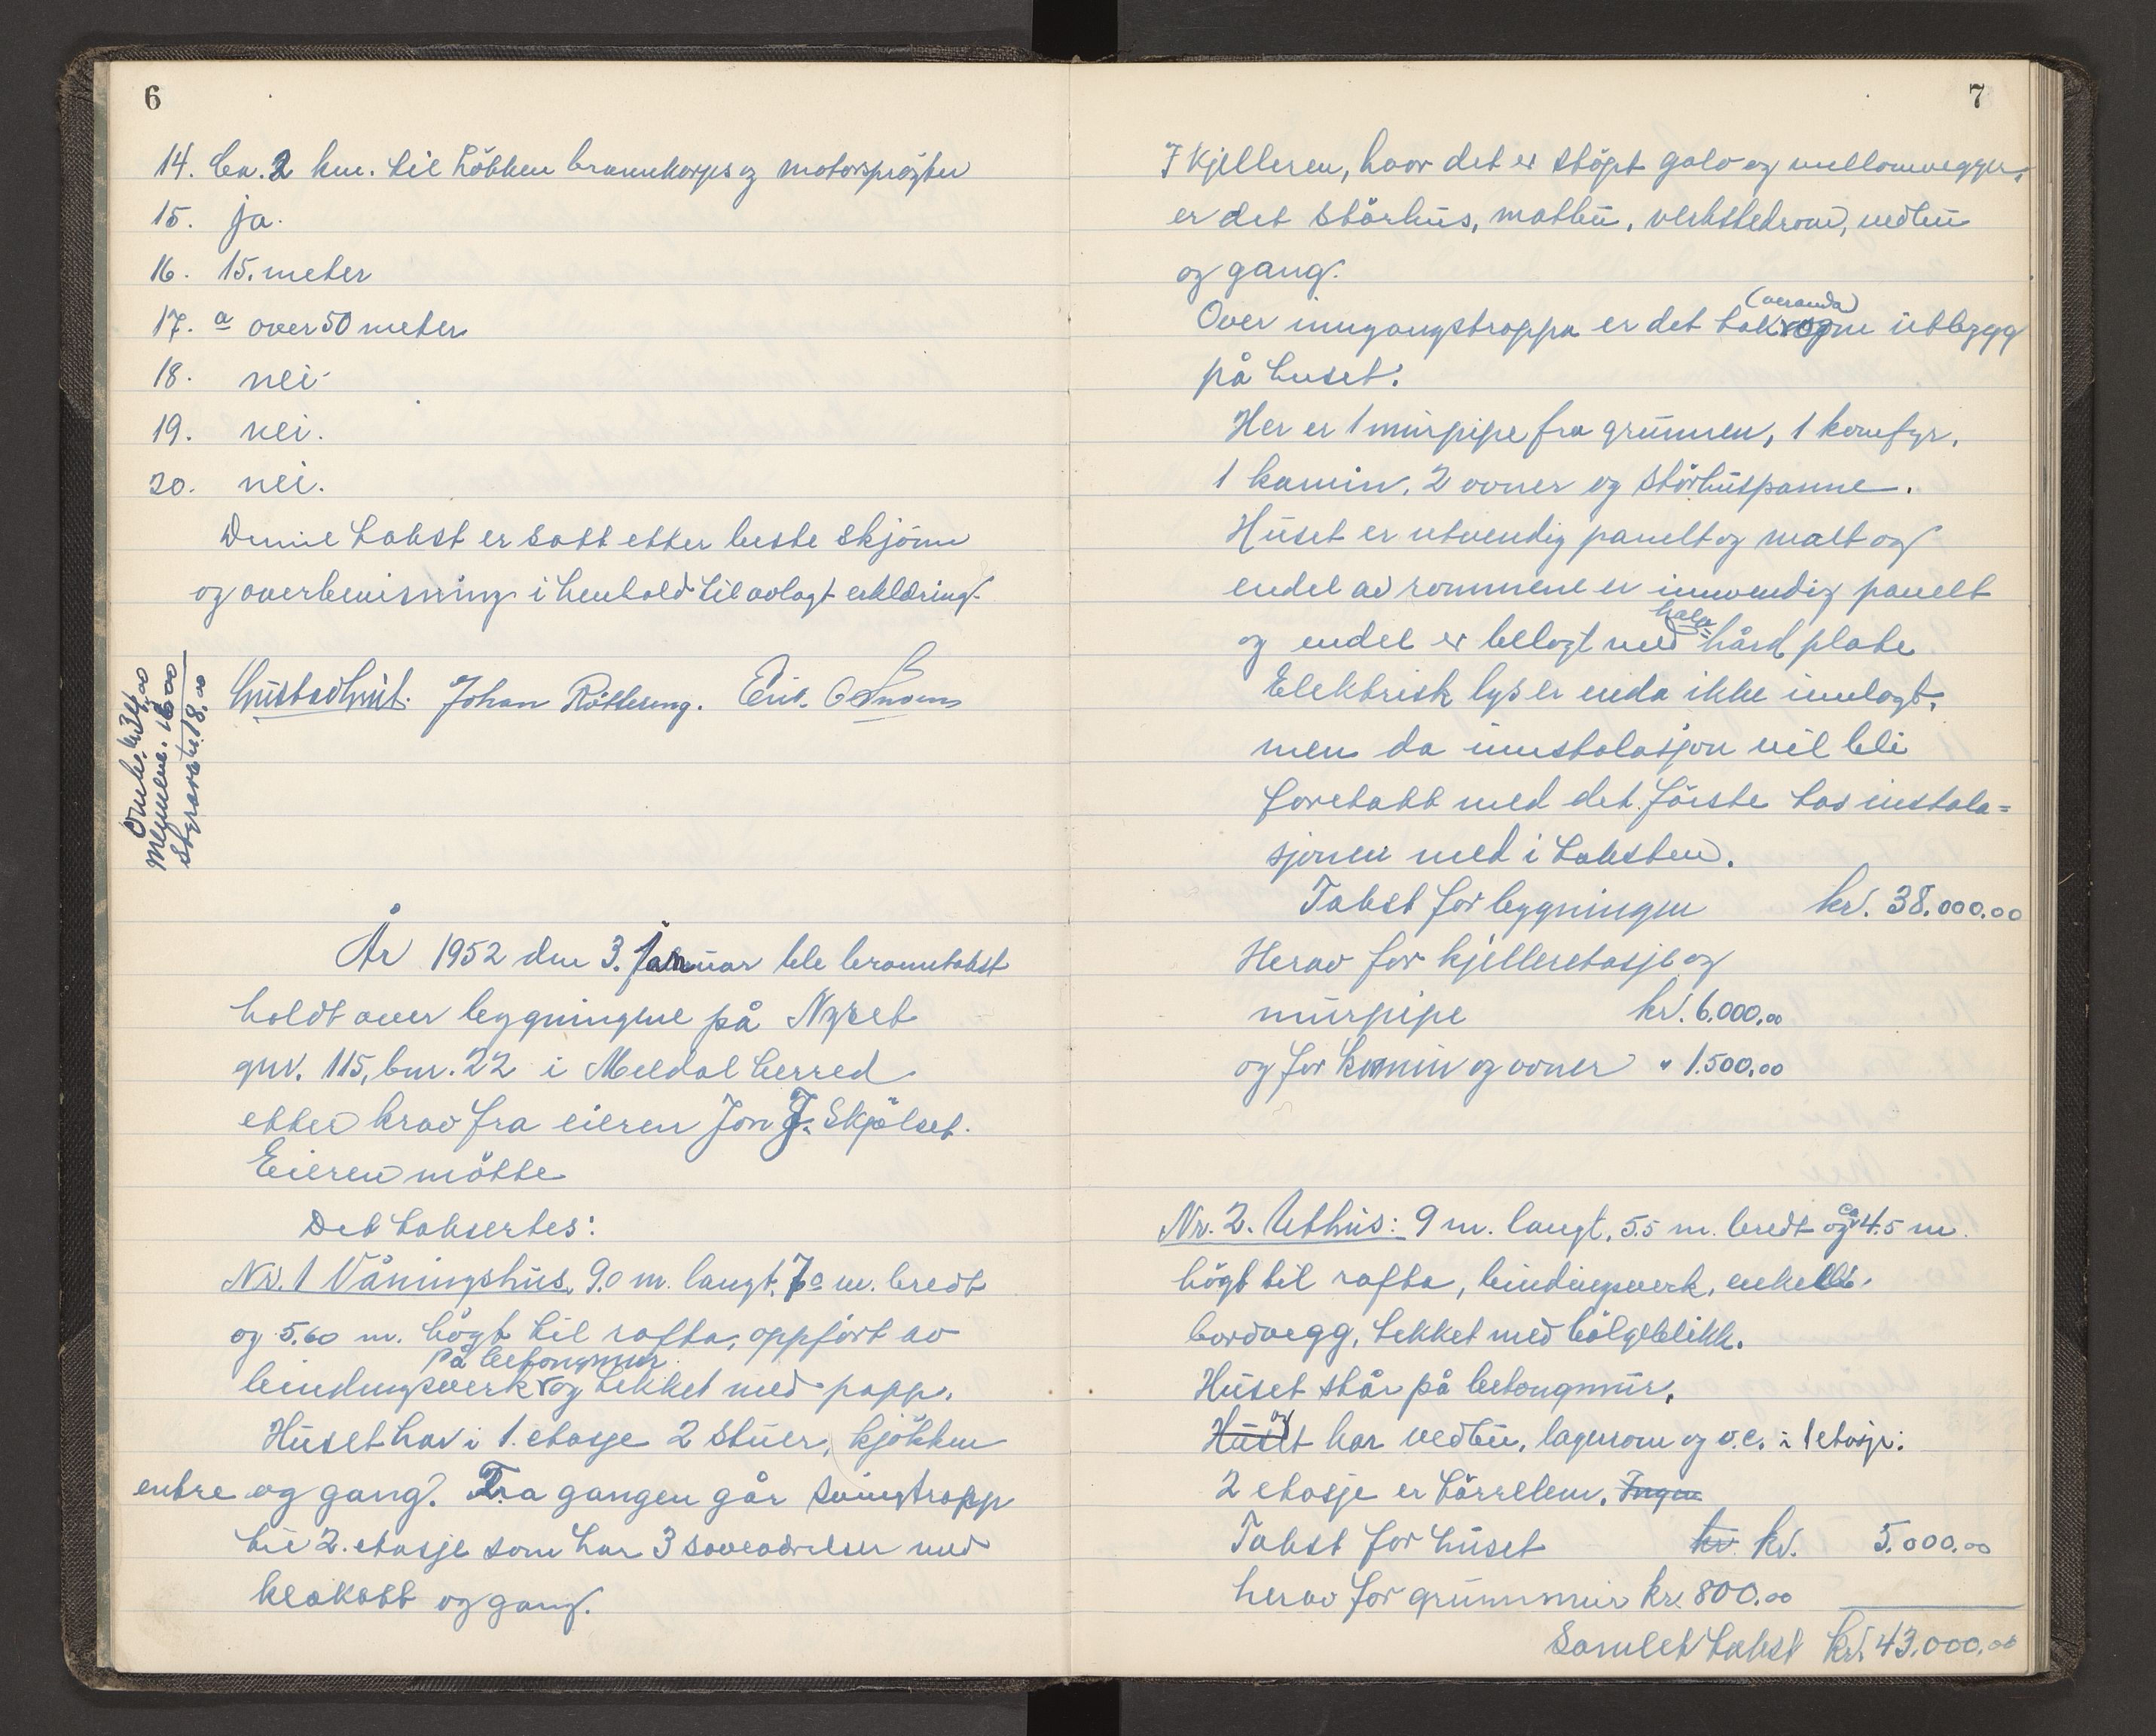 6
14. Ca. 2 km. til Løkken brannkorps og motorsprøyter
15. ja.
16. 15. meter
17. a over 50 meter
18. nei
19. nei.
20. nei.
Denne takst er satt etter beste skjønn
og overbevisning i henhold til avlagt erklæring.
Johan Rölleseng. Erik
Omk. kr. 34.00
Mennene. 16.00
18.00
År 1952 den 3. januar ble branntakst
holdt over bygningene på Nyset
gnr. 115, bnr. 22 i Meldal herred
etter krav fra eieren Jon J. Skjölset.
Eieren mötte
Det taksertes:
Nr. 1 Våningshus, 9.0 m. langt, 7.0 m. bredt
og 5.60 m. högt til rafta, oppfört av
på betongmur
bindingsverk og tekket med papp.
Huset har i 1. etasje 2 stuer, kjökken
entre og gang. Fra gangen går svingtrapp
til 2. etasje som har 3 soveværelser med
kleskott og gang.
7
I kjelleren, hvor det er stöpt golv og mellomvegger,
er det störhus, matbu, verkstedrom, vedbu
og gang.
(veranda)
Over inngangstrappa er det utbygg
på huset.
Her er 1 murpipe fra grunnen, 1 komfyr,
1 kamin, 2 ovner og störhuspanne.
Huset er utvendig panelt og malt og
endel av rommene er innvendig panelt
halv-
og endel er belagt med hård plate
Elektrisk lys er enda ikke innlagt,
men da innstalasjon vil bli
foretatt med det förste tas instala=
sjonen med i taksten.
Takst for bygningen kr. 38.000.00
Herav for kjelleretasje og
murpipe kr. 6.000.00
og for kamin og ovner " 1.500.00
Nr. 2. Uthus: 9 m. langt, 5.5 m. bredt og ca 4.5 m.
högt til rafta, bindingsverk, enkelt
bordvegg, tekket med bölgeblikk.
Huset står på betongmur,
og
Huset har vedbu, lagerrom og v.c. i 1 etasje.
2 etasje er törrelem. Ingen
Takst for huset kr kr. 5.000.00
herav for grunnmur kr. 800.00
Samlet takst kr. 43.000.00